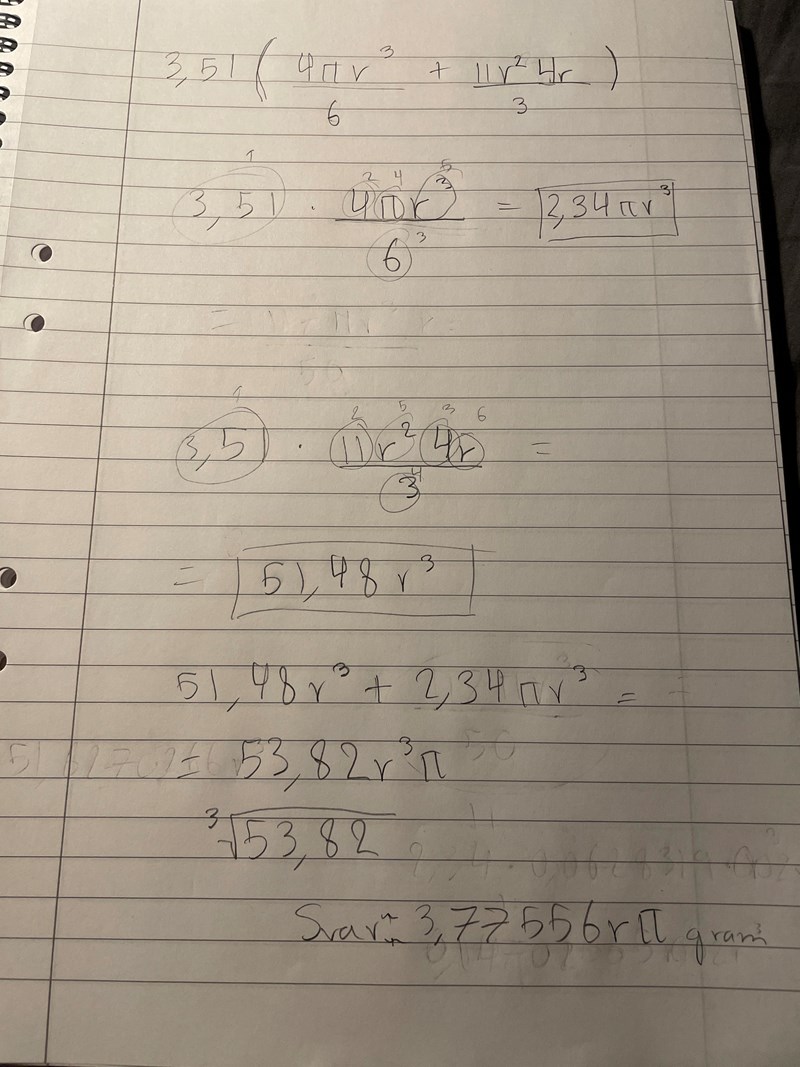 3,51 ( 4πr³/6 + 11r²4r/3 )
1 2 4 5
3,51 · 4πr³/6 = 2,34πr³
3
1 2 5 3 6
3,51 · 11r²4r/3 =
4
= 51,48 r³
51,48r³ + 2,34πr³ =
= 53,82r³π
³√53,82
Svar: 3,77556rπ gram